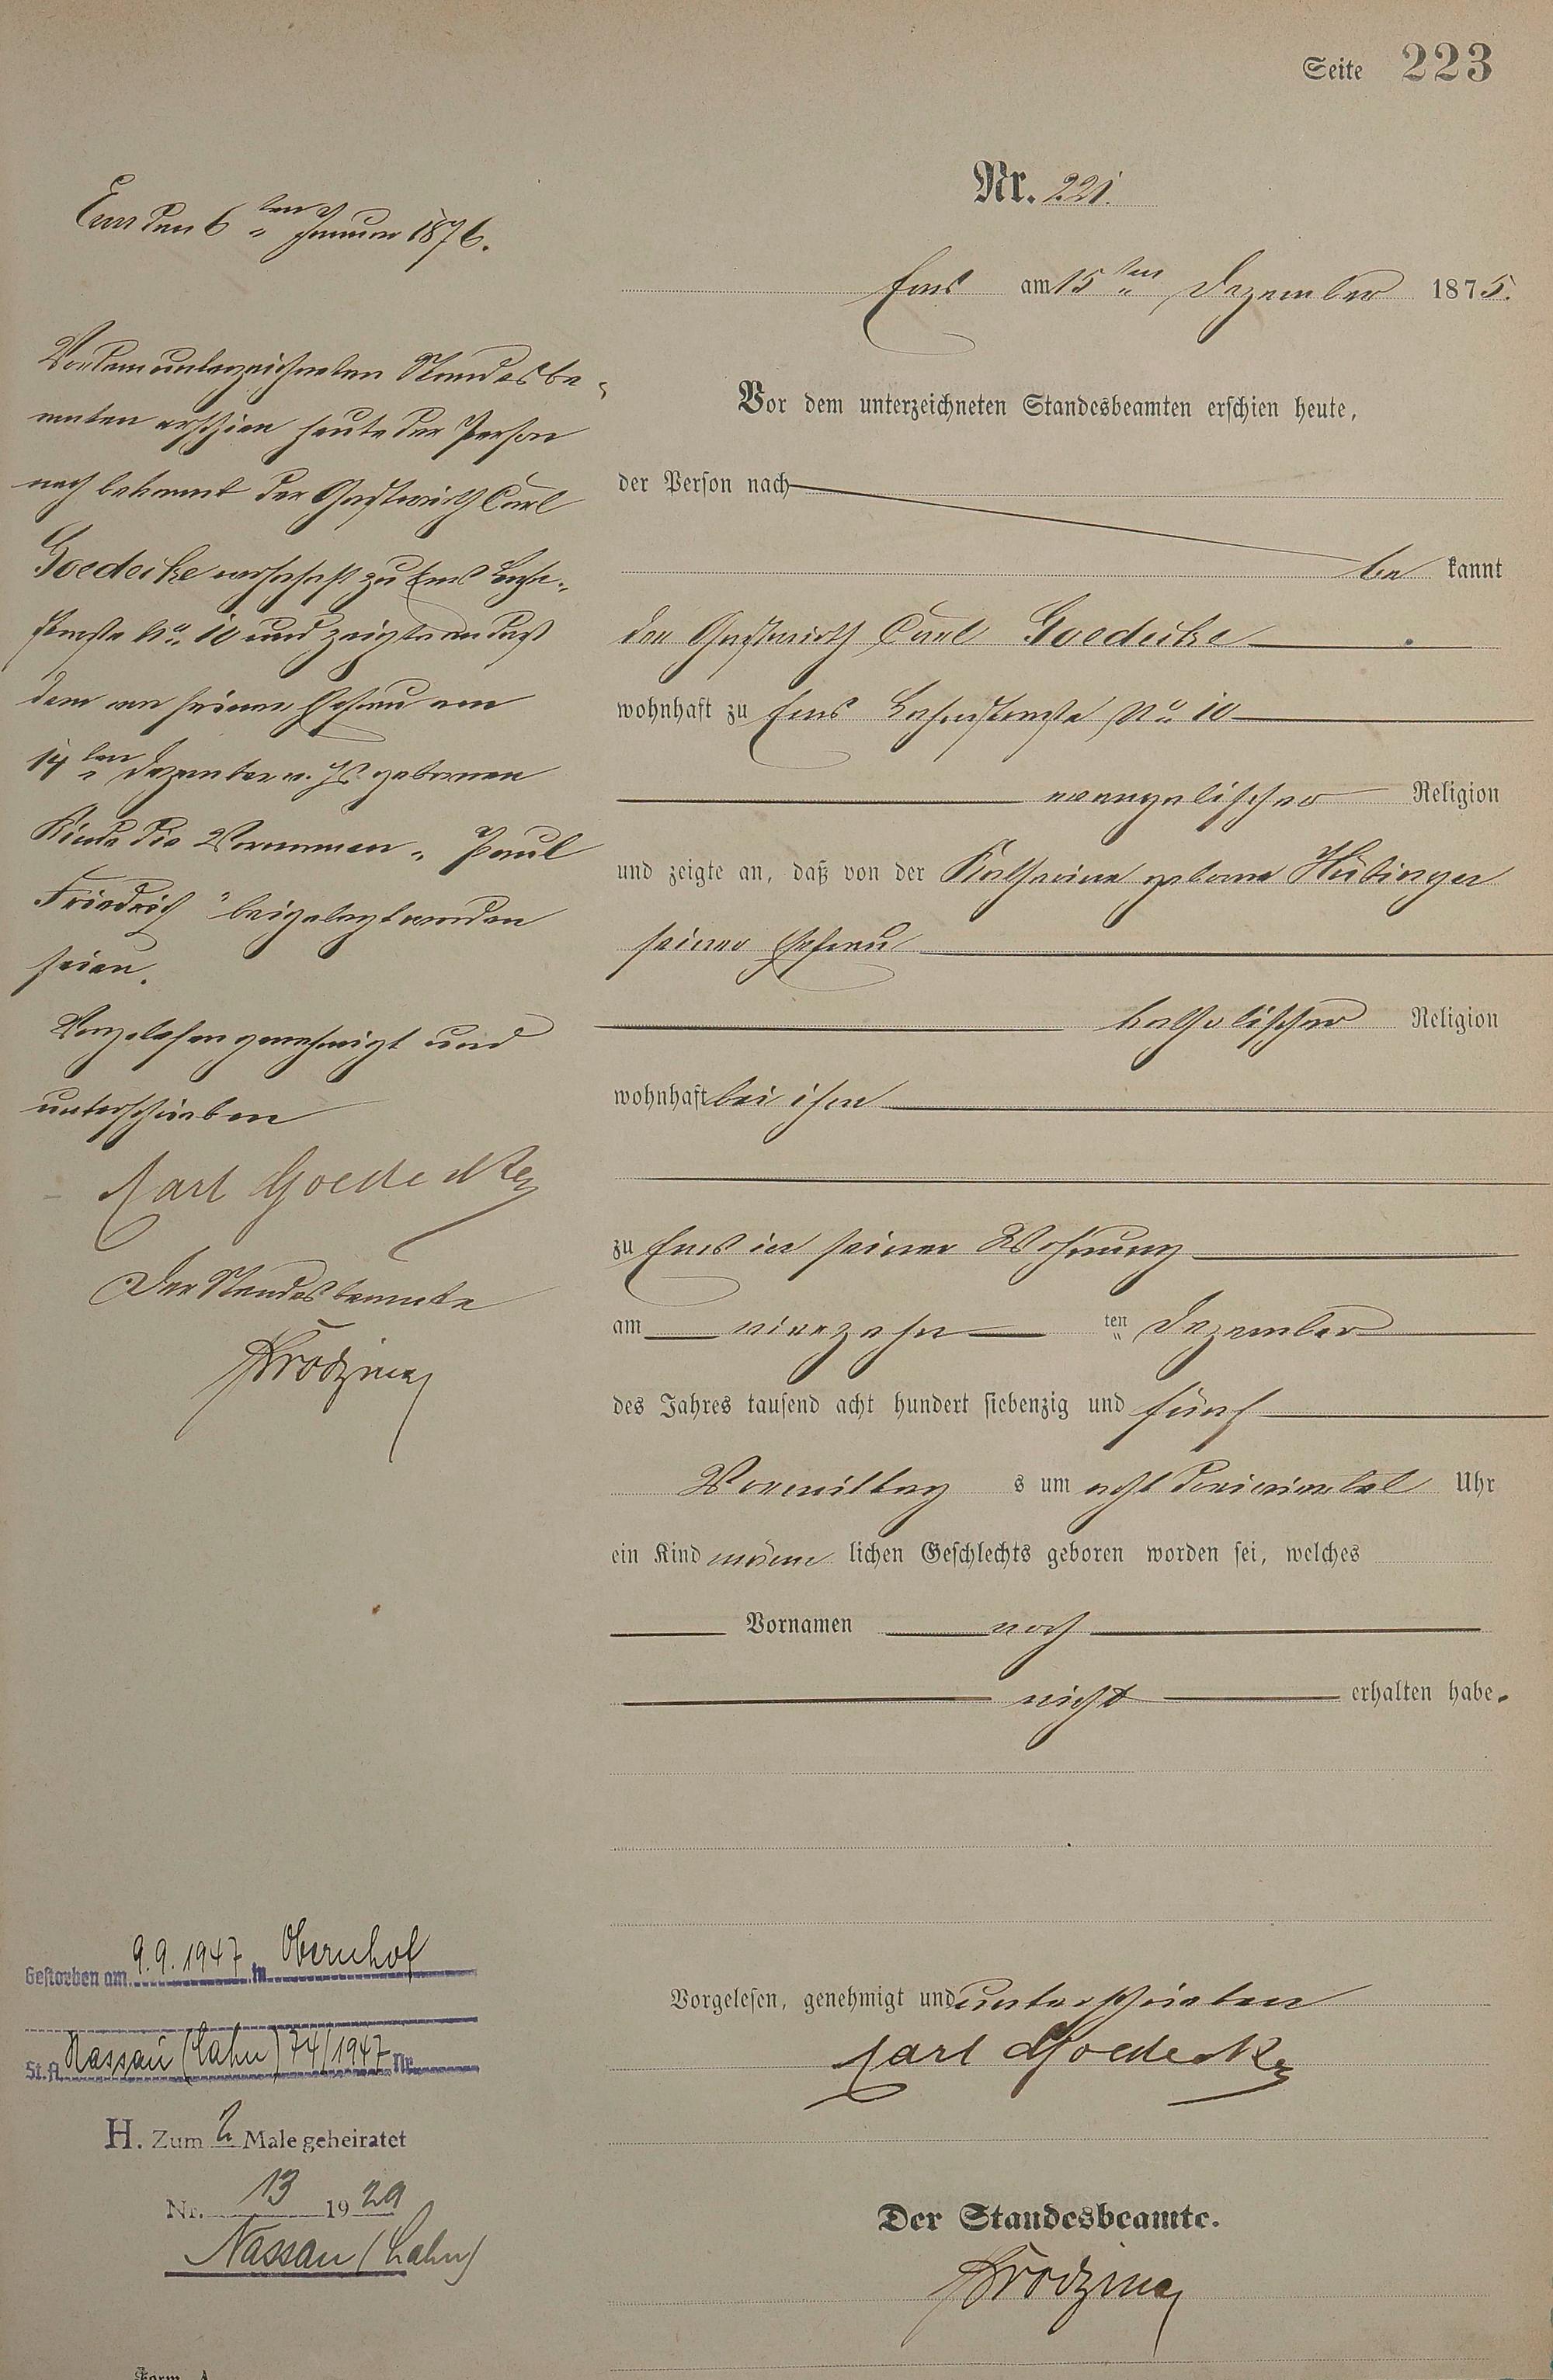 Seite 223
Nr. 221.
Ems am 15ten Dezember 1875.
Vor dem unterzeichneten Standesbeamten erschien heute,
der Person nach
be kannt
der Gastwirth Carl Goedecke
wohnhaft zu Ems Lahnstraße No 10
evangelischer Religion
und zeigte an, daß von der Katharina geborne Hübinger
seiner Ehefrau
katholischer Religion
wohnhaft bei ihm
zu Ems in seiner Wohnung
am vierzehn ten Dezember
des Jahres tausend acht hundert siebenzig und fünf
Vormittag s um acht dreiviertel Uhr
ein Kind männ lichen Geschlechts geboren worden sei, welches
Vornamen noch
nicht erhalten habe.
Vorgelesen, genehmigt und unterschrieben
Carl Goedecke
Der Standesbeamte.
Ems den 6ten Januar 1876.
Vor dem unterzeichneten Standesbe-
amten erschien heute der Person
nach bekannt der Gastwirth Carl
Goedecke wohnhaft zu Ems Lahn-
straße No 10 und zeigte an daß
dem von seiner Ehefrau am
14ten Dezember v. Js. geborenen
Kinde die Vornamen „Paul
Friedrich" beigelegt worden
seien.
Vorgelesen genehmigt und
unterschrieben
Carl Goedecke
Der Standesbeamte
Gestorben am 9.9.1947 in Obernhof
St.A. Nassau (Lahn) 74/1947 Nr.
H. Zum 2. Male geheiratet
Nr. 13 1929
Nassau (Lahn)
Form. A